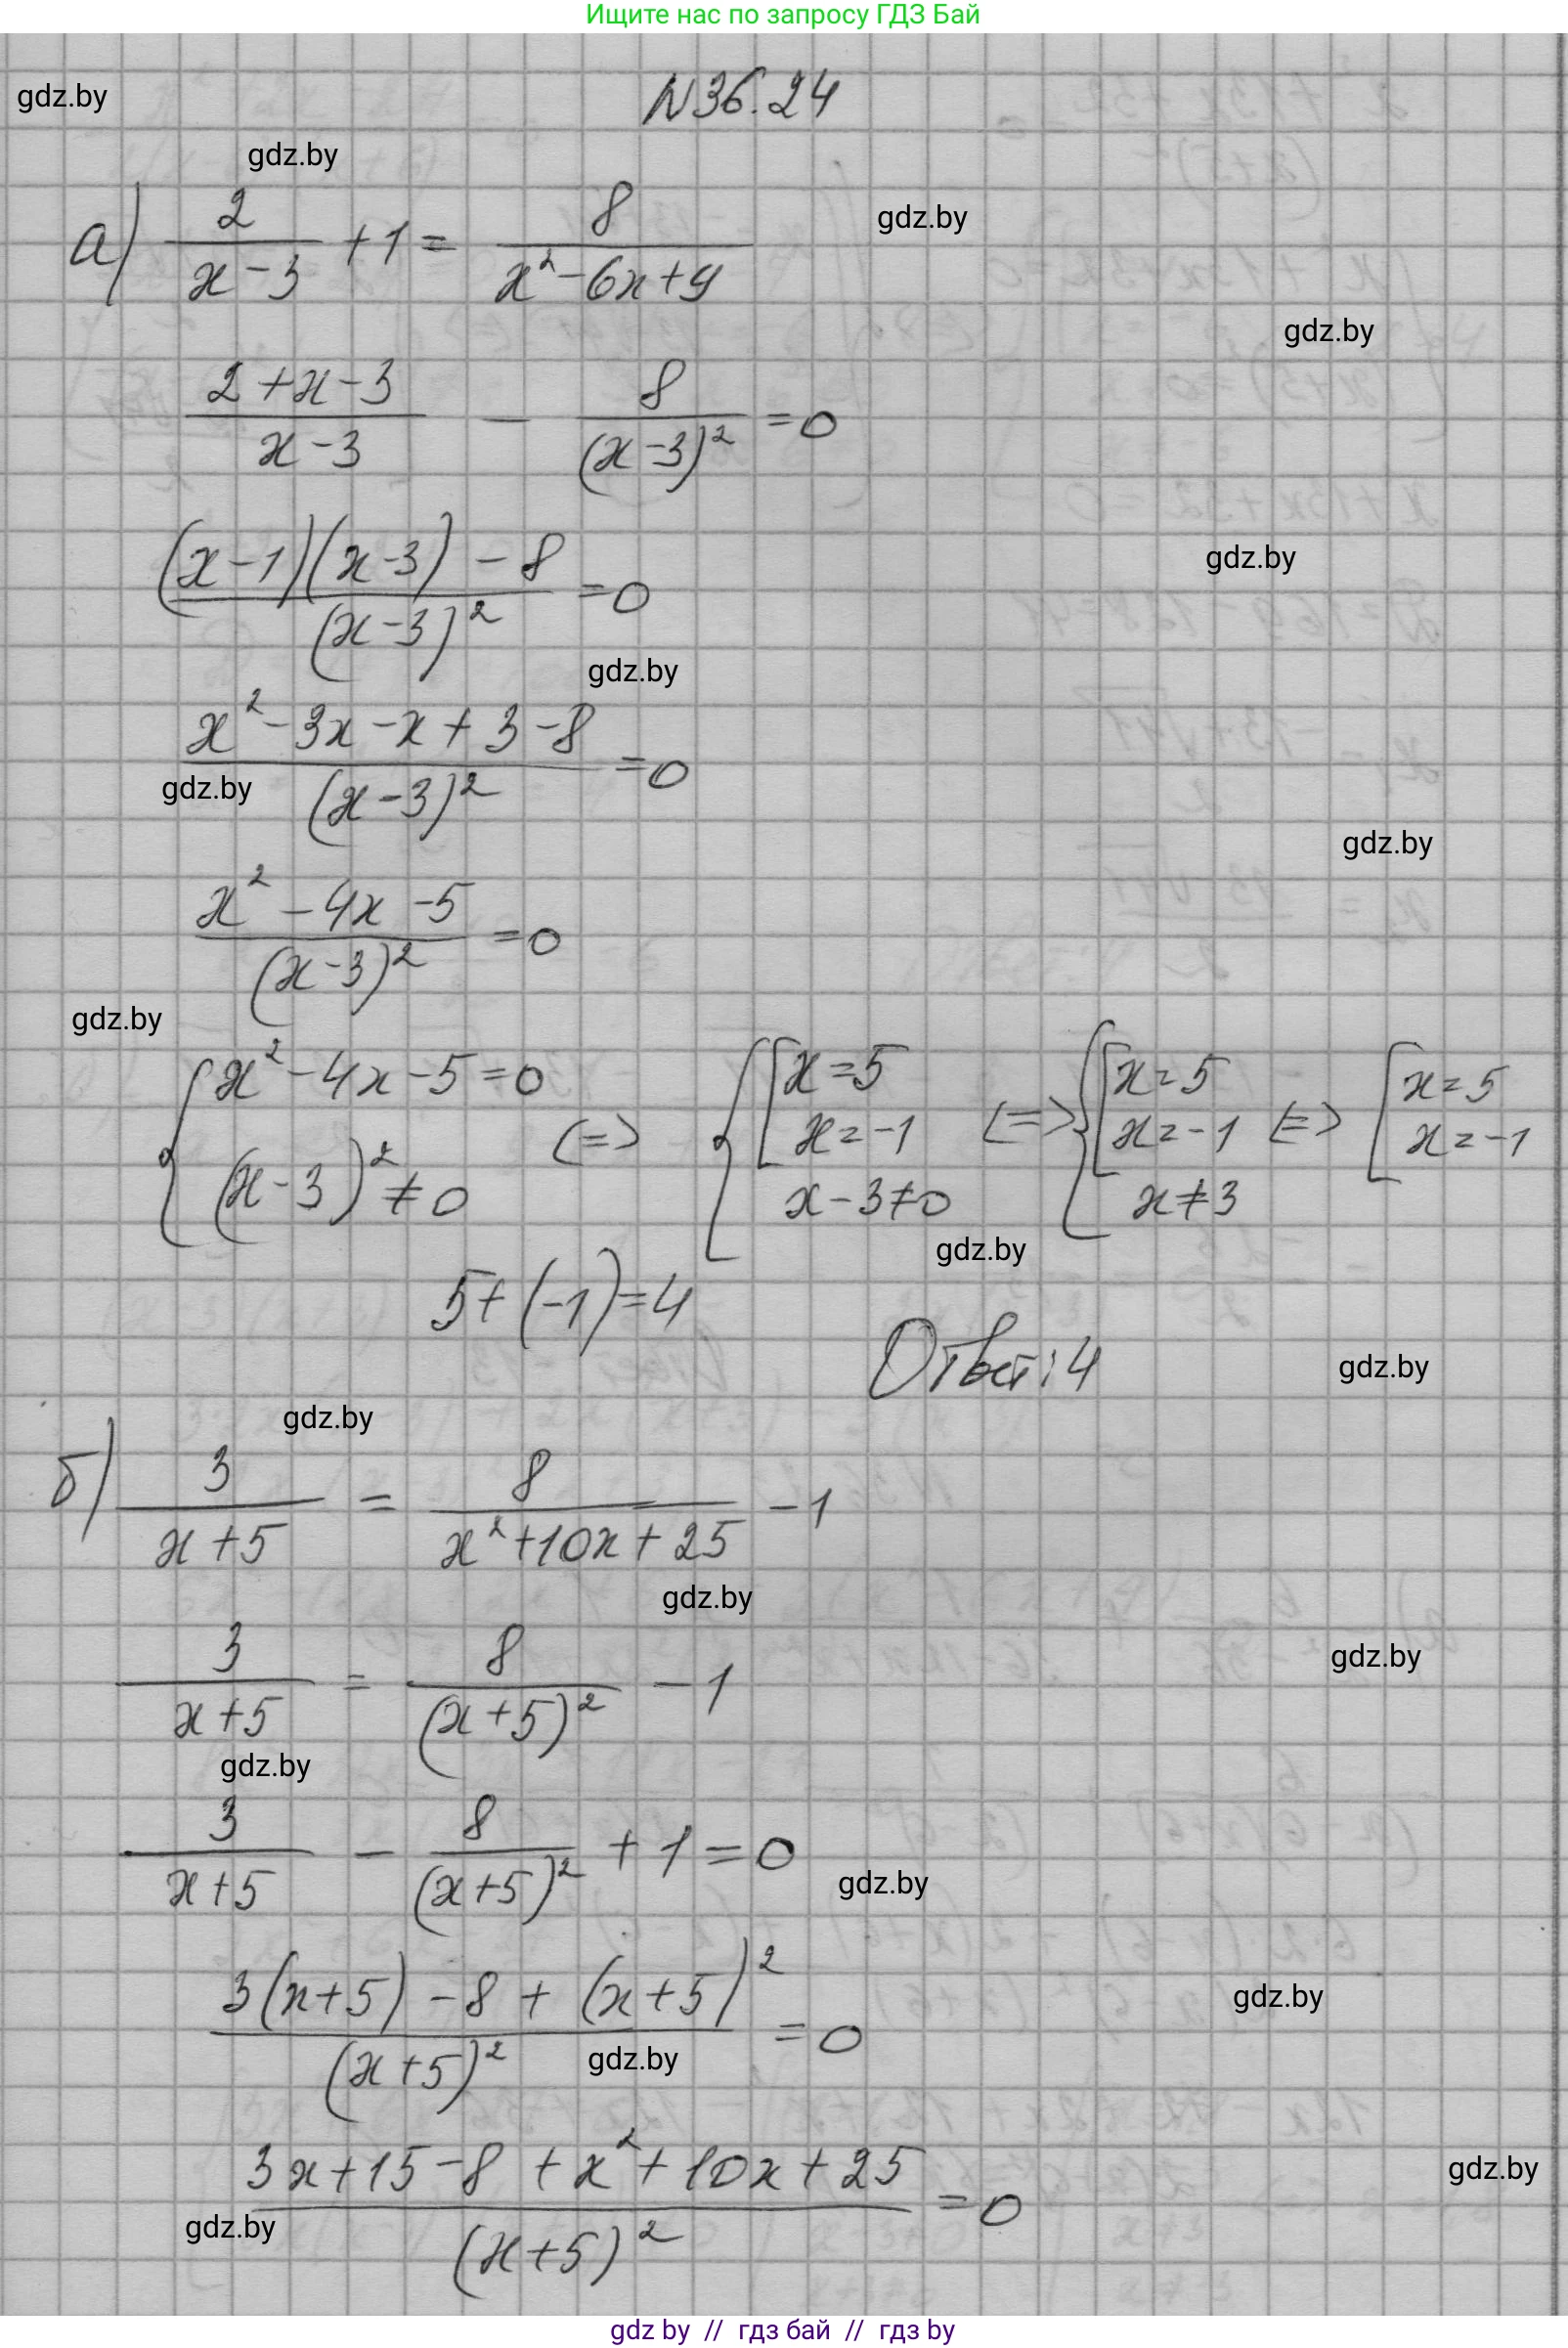 Ищите нас по запросу ГДЗ Бай
N36.24
gdz.by
gdz.by
gdz.by
а) 2/(x-3) + 1 = 8/(x²-6x+9)
gdz.by
(2+x-3)/(x-3) - 8/(x-3)² = 0
gdz.by
((x-1)(x-3)-8)/(x-3)² = 0
gdz.by
(x²-3x-x+3-8)/(x-3)² = 0
gdz.by
gdz.by
(x²-4x-5)/(x-3)² = 0
gdz.by
{ x²-4x-5=0 (x-3)²≠0 <=> { [ x=5 x=-1 x-3≠0 <=> { [ x=5 x=-1 x≠3 <=> [ x=5 x=-1
gdz.by
5+(-1)=4
Ответ: 4
gdz.by
gdz.by
б) 3/(x+5) = 8/(x²+10x+25) - 1
gdz.by
3/(x+5) = 8/(x+5)² - 1
gdz.by
gdz.by
3/(x+5) - 8/(x+5)² + 1 = 0
gdz.by
(3(x+5)-8+(x+5)²)/(x+5)² = 0
gdz.by
gdz.by
(3x+15-8+x²+10x+25)/(x+5)² = 0
gdz.by
gdz.by
gdz by // гдз бай // гдз by